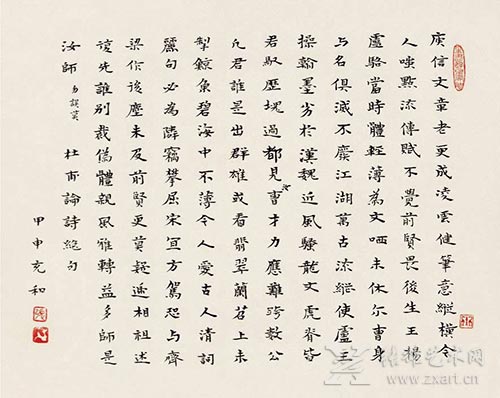 庾信文章老更成凌雲健筆意縱橫今
人嗤點流傳賦不覺前賢畏後生王楊
盧駱當時體輕薄為文哂未休尔曹身
与名俱滅不廢江湖萬古流縱使盧王
操翰墨劣於漢魏近風騷龍文虎脊皆
君馭歷塊過都見尔曹才力應難跨數公
凡君誰是出群雄或看翡翠蘭苕上未
掣鯨魚碧海中不薄今人愛古人清詞
麗句必為鄰竊攀屈宋宜方駕恐与齊
梁作後塵未及前賢更莫疑遞相祖述
復先誰別裁偽體親風雅轉益多師是
汝師 杜甫論詩絕句
甲申充和
www.zxart.cn